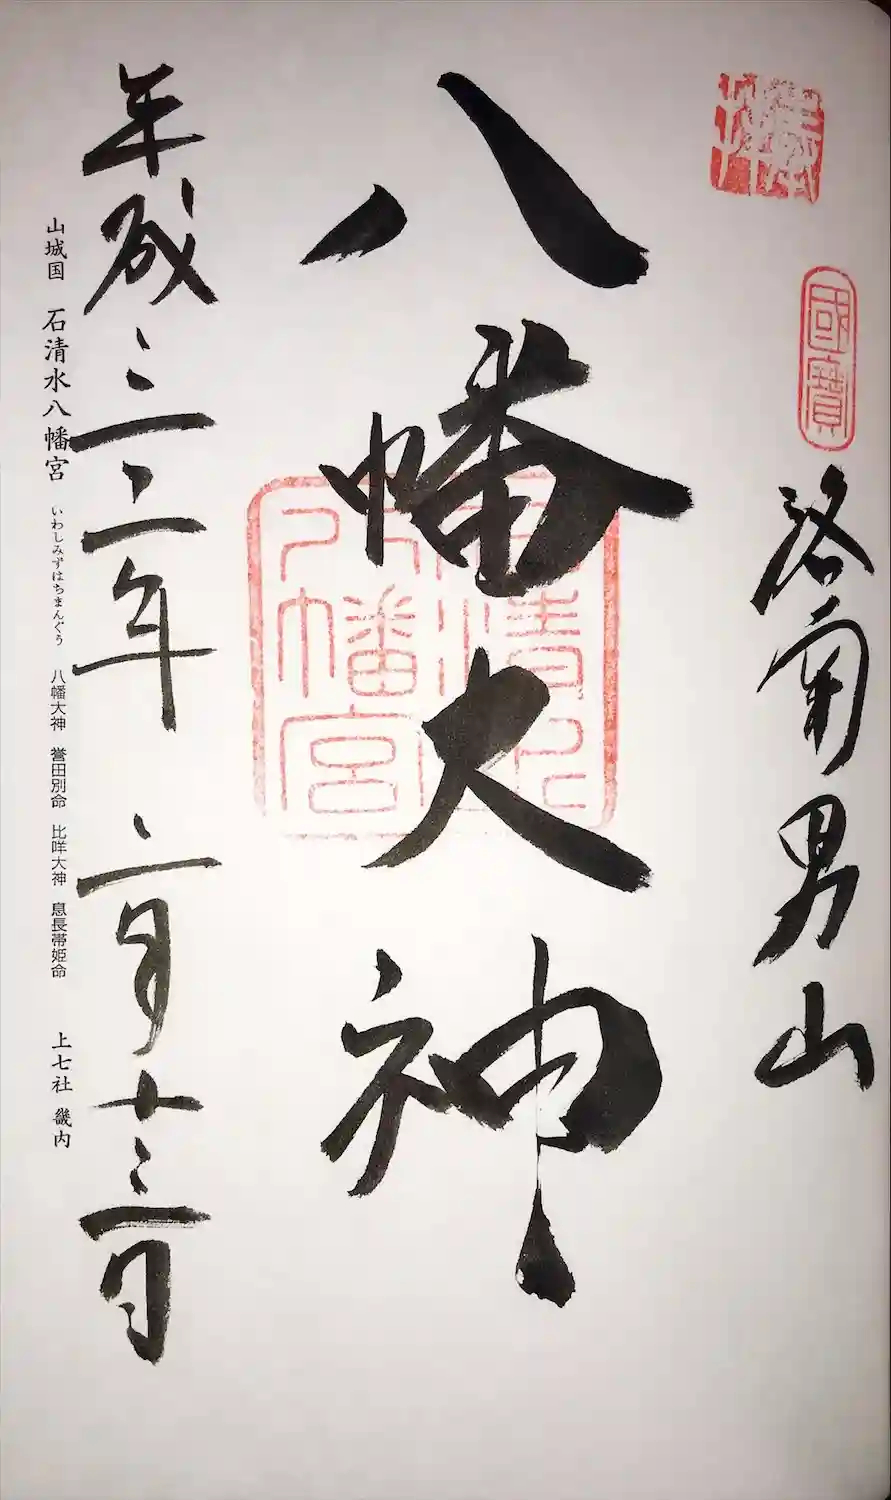 奉拝
國寶
洛南男山
八幡大神
石清水八幡宮
平成三二年 二月十三日
山城国 石清水八幡宮 いわしみずはちまんぐう 八幡大神 誉田別命 比咩大神 息長帯姫命 上七社 畿内